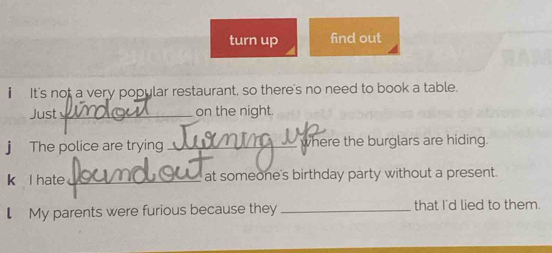 turn up find out
i It's not a very popular restaurant, so there's no need to book a table.
Just find out on the night.
j The police are trying turning up where the burglars are hiding.
k I hate found out at someone's birthday party without a present.
l My parents were furious because they ____________ that I'd lied to them.